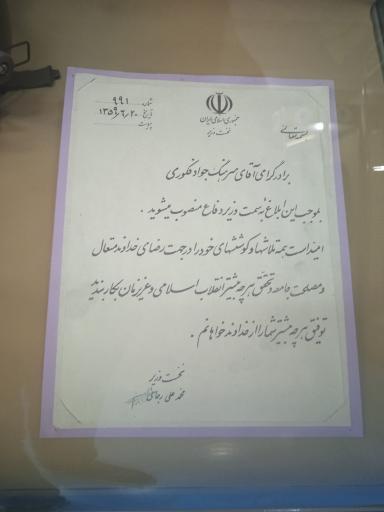 جمهوری اسلامی ایران
نخست وزیر
شماره ۹۹۱
تاریخ ۱۳۵۹/۶/۲۰
پیوست
بسمه تعالی
برادر گرامی آقای سرهنگ جواد فکوری
بموجب این ابلاغ به سمت وزیر دفاع منصوب میشوید .
امید است همه تلاشها و کوششهای خود را در جهت رضای خداوند متعال
و مصلحت جامعه و تحقق هرچه بیشتر انقلاب اسلامی و عزیزمان بکار بندید
توفیق هرچه بیشتر شما را از خداوند خواهانم .
نخست وزیر
محمد علی رجائی